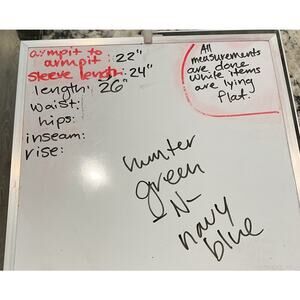 armpit to
armpit: 22"
sleeve length: 24"
length: 26"
waist:
hips:
inseam:
rise:
All
measurements
are done
while items
are lying
flat.
hunter
green
-N-
navy
blue